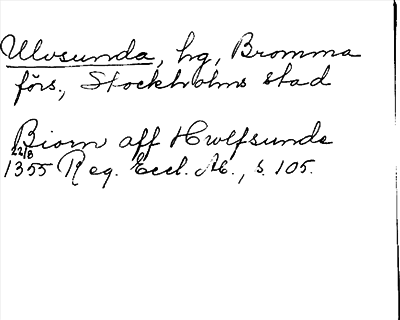 Ulvsunda, hg, Bromma
förs., Stockholms stad
Biorn aff Hwlfsunde
22/8
1355 Reg. Eccl. Ab., s. 105.